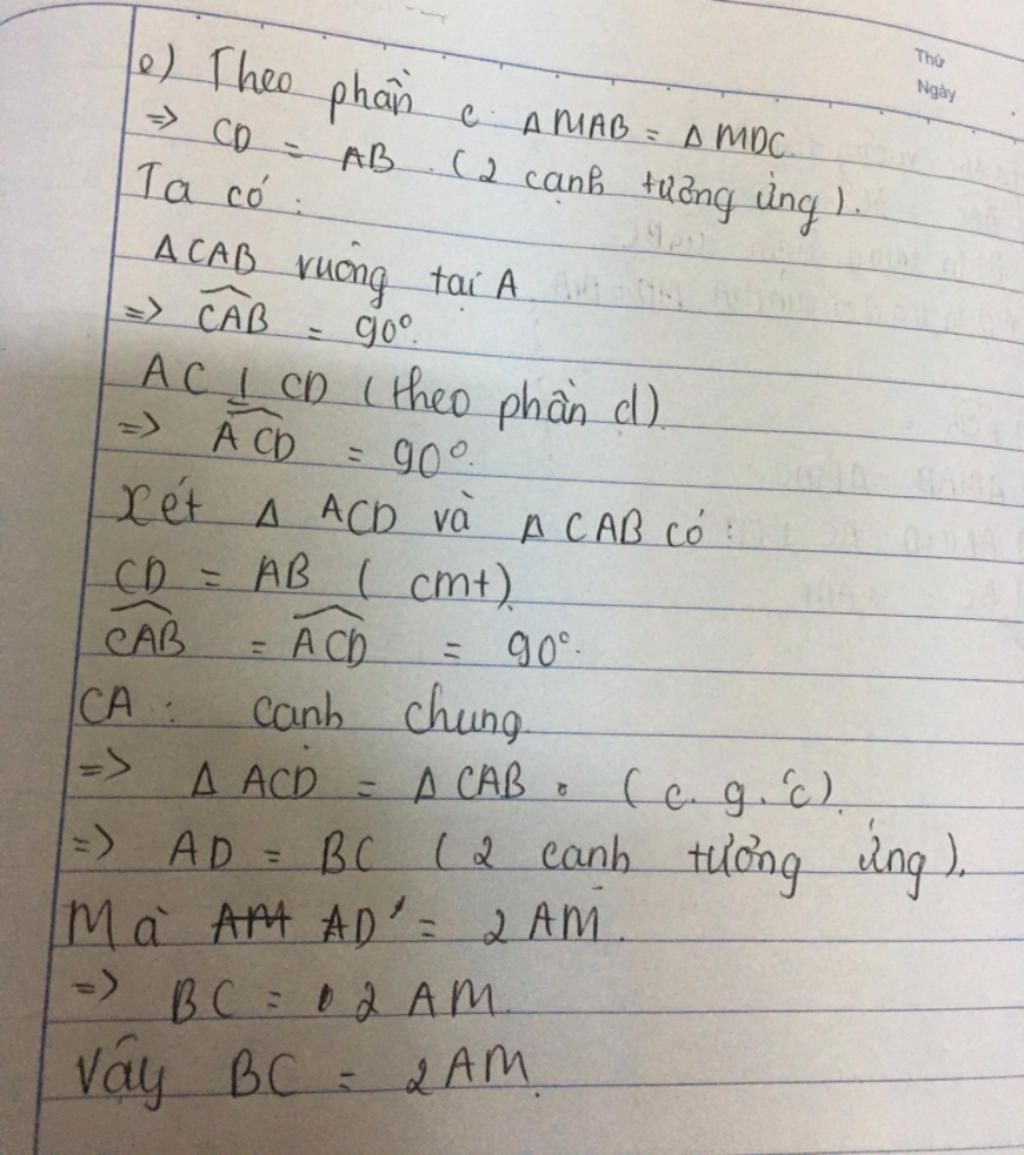 Thứ
Ngày
e) Theo phần c. Δ MAB = Δ MDC.
=> CD = AB. (2 cạnh tương ứng).
Ta có:
Δ CAB vuông tại A
=> CAB = 90°.
AC ⊥ CD (theo phần d)
=> ACD = 90°.
Xét Δ ACD và Δ CAB có:
CD = AB (cmt).
CAB = ACD = 90°.
CA: cạnh chung.
=> Δ ACD = Δ CAB. (c.g.c).
=> AD = BC (2 cạnh tương ứng).
Mà AD = 2 AM.
=> BC = 2 AM.
Vậy BC = 2 AM.